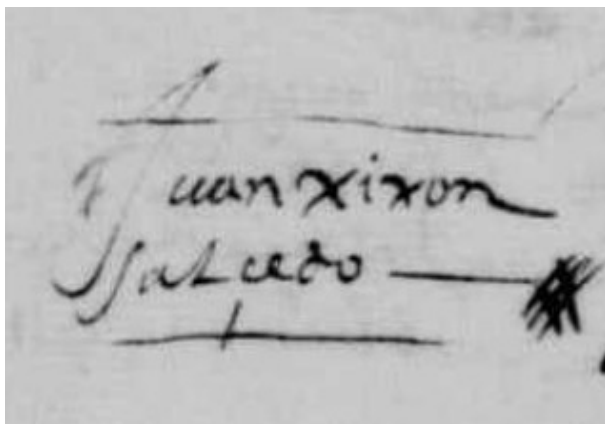 Juan xixon
Salcedo